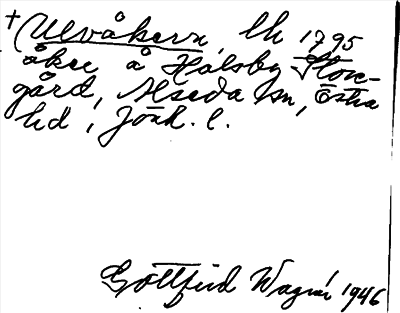 + Ulvåkern, lh 1795
åker å Hälsby Stom-
gård, Alseda sn, Östra
hd, Jönk. l.
Gottfrid Wagnér 1946